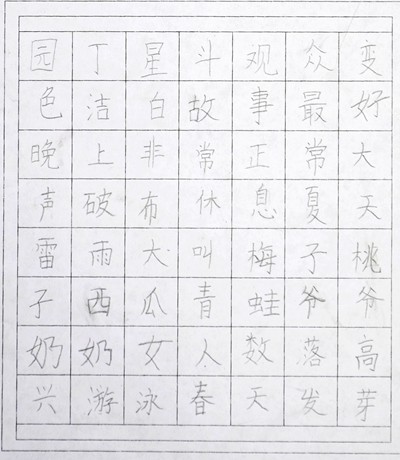 园丁星斗观众变
色洁白故事最好
晚上非常正常大
声破布休息夏天
雷雨大叫梅子桃
子西瓜青蛙爷爷
奶奶女人数落高
兴游泳春天发芽